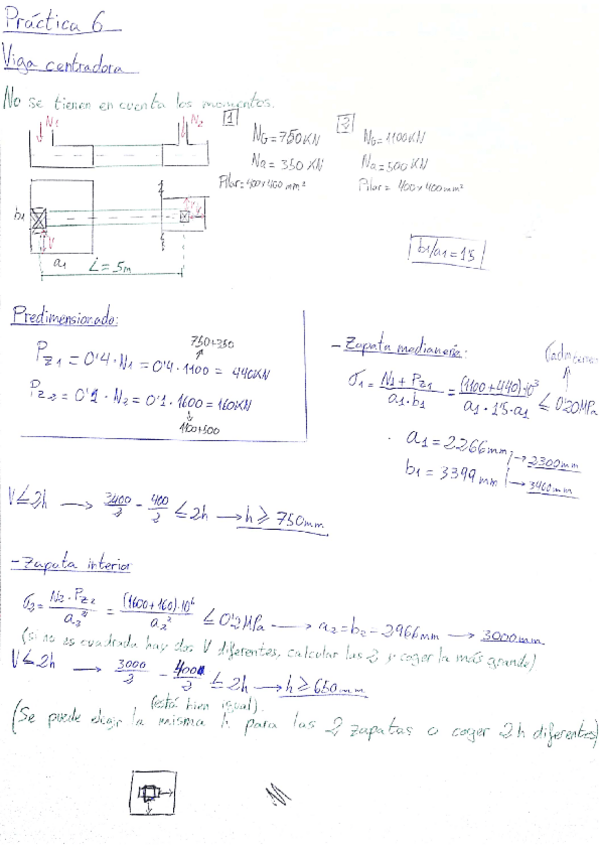 Práctica 6
Viga centradora
No se tienen en cuenta los momentos.
N1 N2
1 NG = 750 KN
NQ = 350 KN
Pilar = 400x400 mm²
2 NG = 1100 KN
NQ = 500 KN
Pilar = 400x400 mm²
b1
V
a1
L = 5m
b1/a1 = 1'5
Predimensionado:
750+350
PZ1 = 0'4 · N1 = 0'4 · 1100 = 440KN
PZ2 = 0'1 · N2 = 0'1 · 1600 = 160KN
1100+500
- Zapata medianería:
σ1 = N1 + PZ1 / a1 · b1 = (1100+440)·10³ / a1 · 1'5 · a1 ≤ 0'20MPa
a1 = 2266mm → 2300mm
b1 = 3399mm → 3400mm
V ≤ 2h → 3400/2 - 400/2 ≤ 2h → h ≥ 750mm
- Zapata interior
σ2 = N2 · PZ2 / a2² = (1600+160)·10⁶ / a2² ≤ 0'2MPa → a2 = b2 = 2966mm → 3000mm
(si no es cuadrada hay dos V diferentes, calcular las 2 y coger la más grande)
V ≤ 2h → 3000/2 - 400/2 ≤ 2h → h ≥ 650mm
(está bien igual).
(Se puede elegir la misma h para las 2 zapatas o coger 2h diferentes)